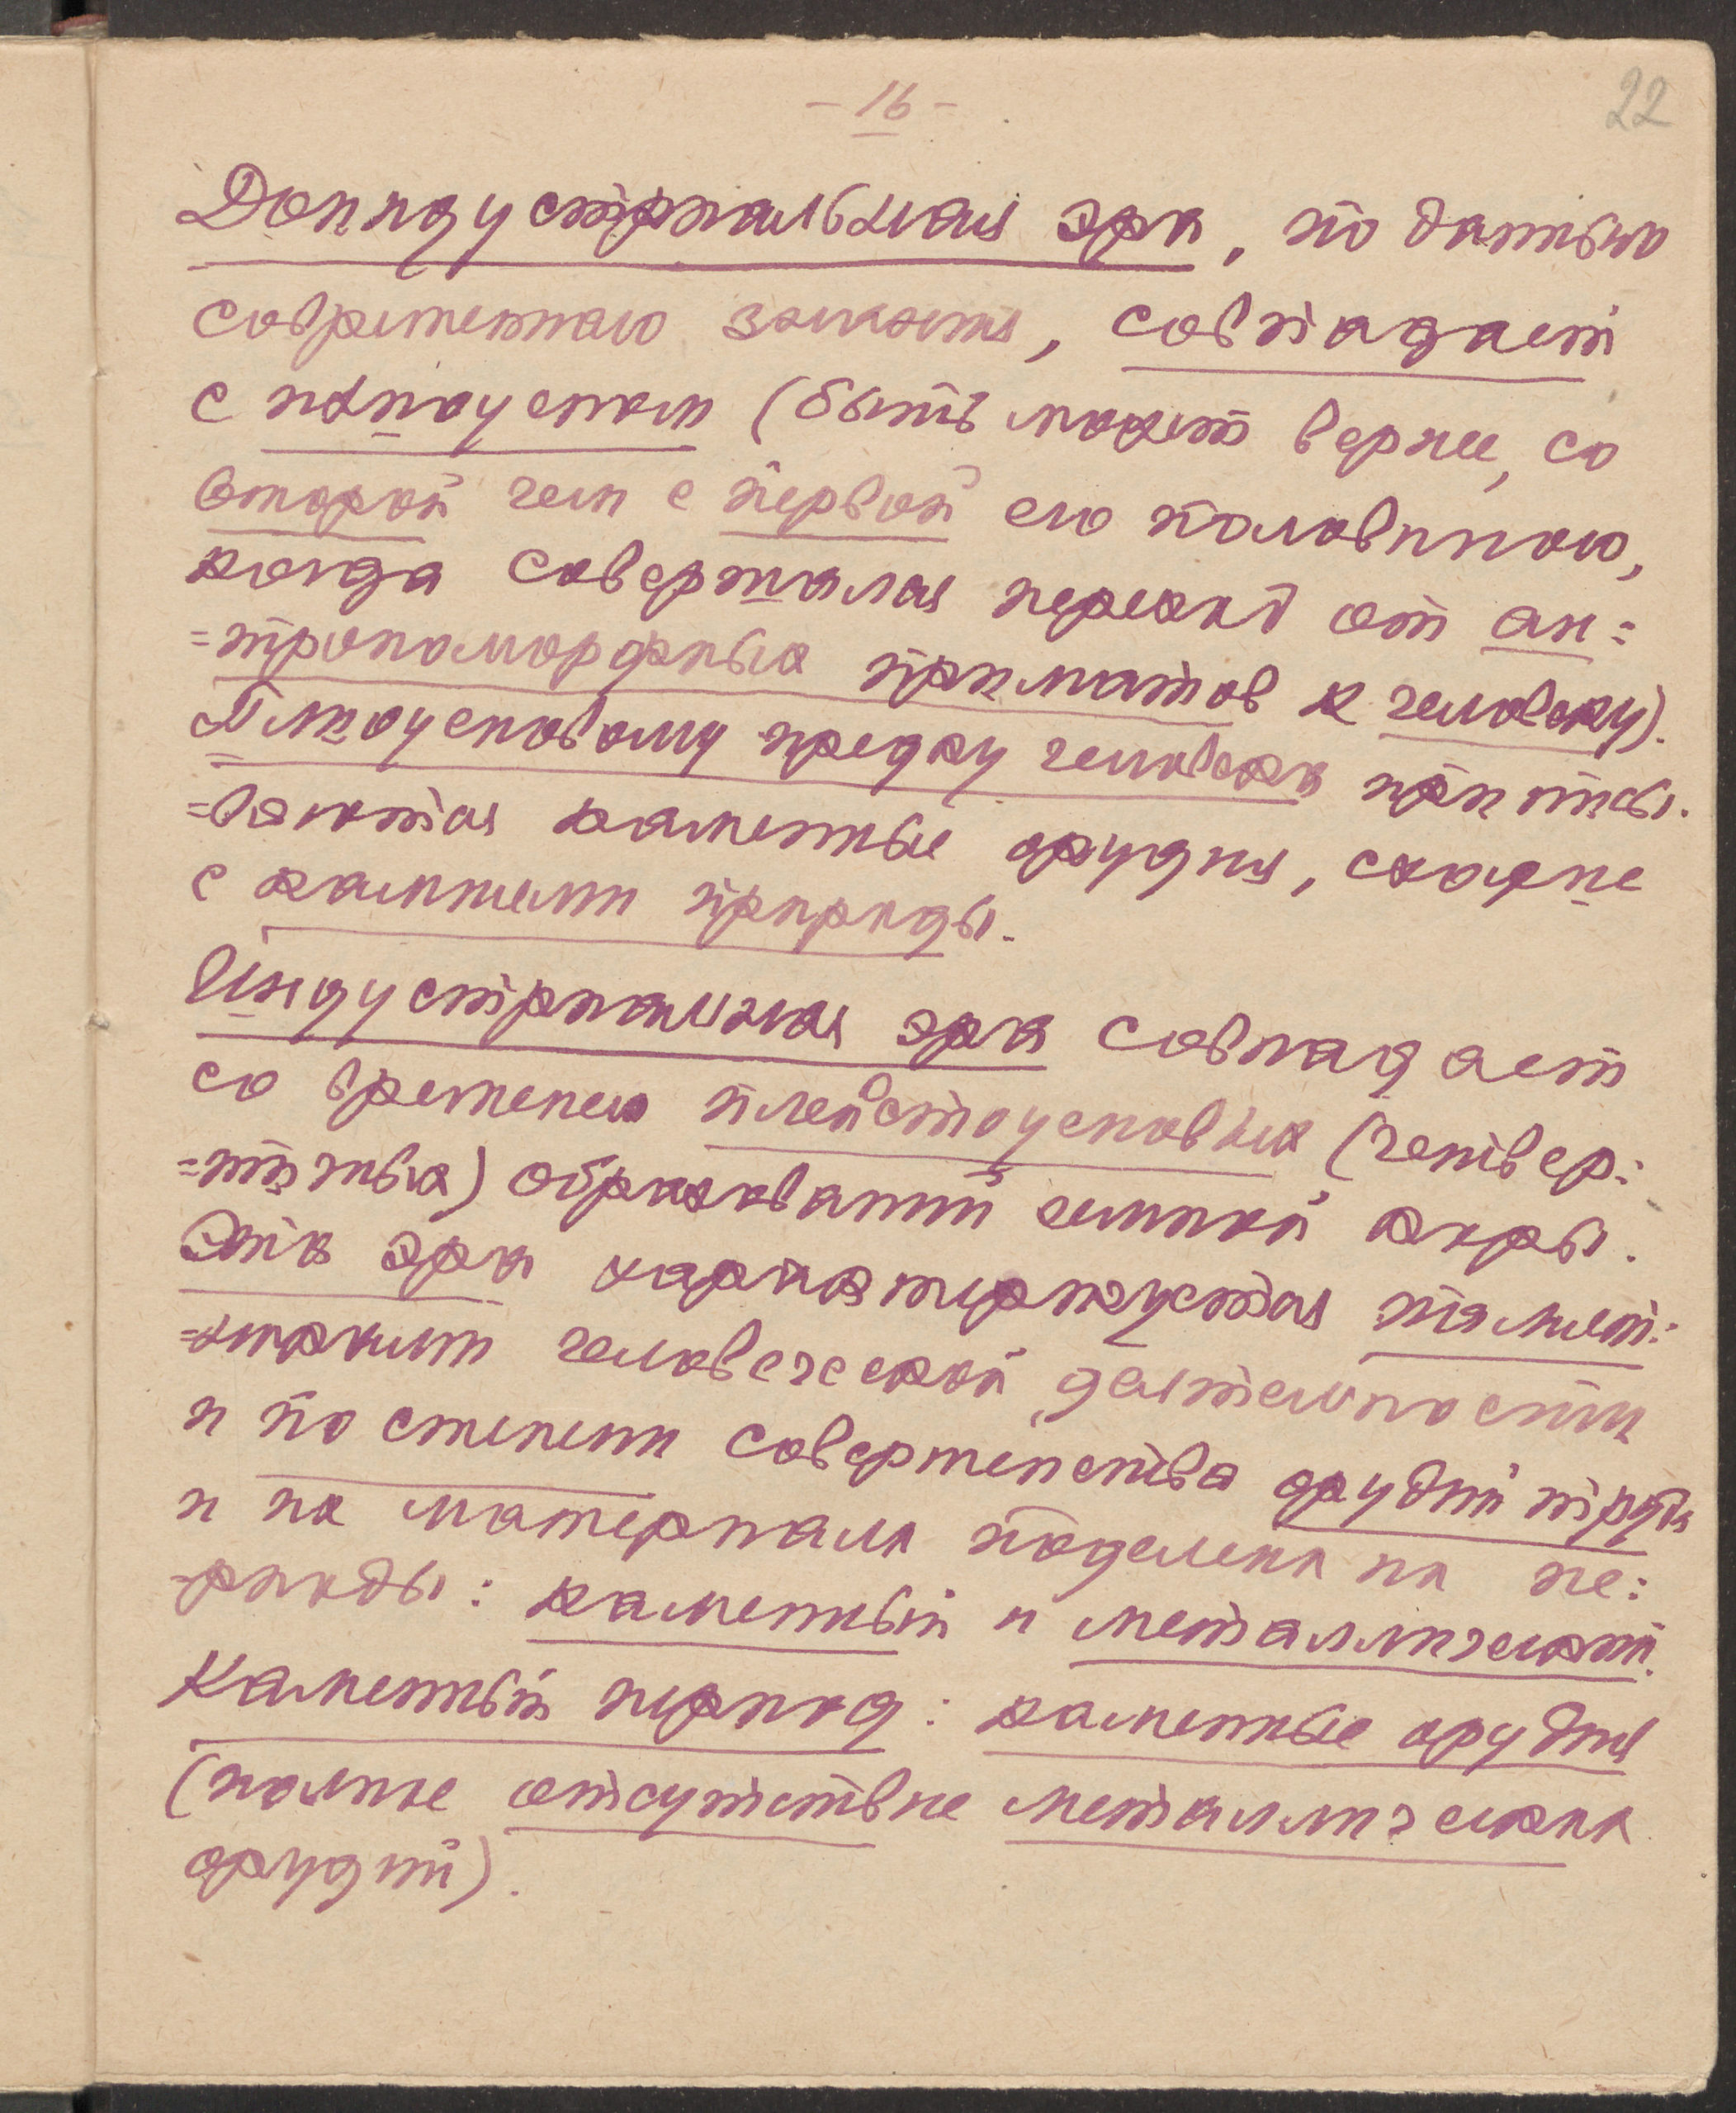 - 16 -
22
Доиндустриальная эра, по данным
современного знания, совпадает
с плиоценом (быть может вернее, со
второй чем с первой его половиною,
когда совершался переход от ан=
=тропоморфных приматов к человеку).
Плиоценовому предку человека приписы-
=ваются каменные орудия, сходные
с камнями природы.
Индустриальная эра совпадает
со временем плейстоценовых (четвер=
=тичных) образований земной коры.
Эта эра характеризуется
человеческой деятельности
и по степени совершенства орудий труда
и их материала поделена на пе=
=риоды: каменный и металлический.
Каменный период: каменные орудия
(полное отсутствие металлических
орудий).